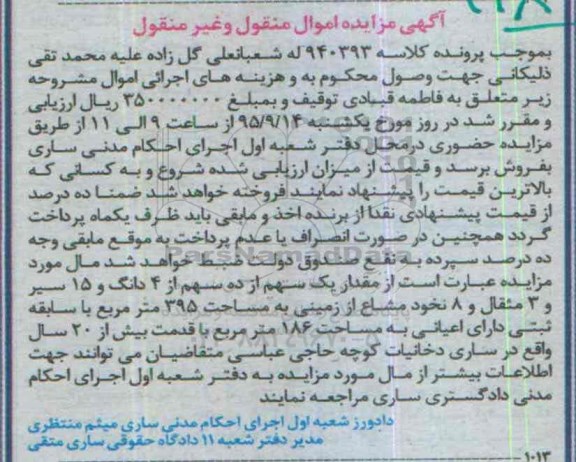 آگهی مزایده اموال منقول وغیر منقول
بموجب پرونده کلاسه ۹۴۰۳۹۳ له شعبانعلی گل زاده علیه محمد تقی
ذلیکانی جهت وصول محکوم به و هزینه های اجرائی اموال مشروحه
زیر متعلق به فاطمه قبادی توقیف و بمبلغ ۳۵۰۰۰۰۰۰۰۰ ریال ارزیابی
و مقرر شد در روز مورخ یکشنبه ۹۵/۹/۱۴ از ساعت ۹ الی ۱۱ از طریق
مزایده حضوری درمحل دفتر شعبه اول اجرای احکام مدنی ساری
بفروش برسد و قیمت از میزان ارزیابی شده شروع و به کسانی که
بالاترین قیمت را پیشنهاد نمایند فروخته خواهد شد ضمنا ده درصد
از قیمت پیشنهادی نقدا از برنده اخذ و مابقی باید ظرف یکماه پرداخت
گردد همچنین در صورت انصراف یا عدم پرداخت به موقع مابقی وجه
ده درصد سپرده به نفع صندوق دولت ضبط خواهد شد مال مورد
مزایده عبارت است از مقدار یک سهم از ده سهم از ۴ دانگ و ۱۵ سیر
و ۳ مثقال و ۸ نخود مشاع از زمینی به مساحت ۳۹۵ متر مربع با سابقه
ثبتی دارای اعیانی به مساحت ۱۸۶ متر مربع با قدمت بیش از ۲۰ سال
واقع در ساری دخانیات کوچه حاجی عباسی متقاضیان می توانند جهت
اطلاعات بیشتر از مال مورد مزایده به دفتر شعبه اول اجرای احکام
مدنی دادگستری ساری مراجعه نمایند
دادورز شعبه اول اجرای احکام مدنی ساری میثم منتظری
مدیر دفتر شعبه ۱۱ دادگاه حقوقی ساری متقی
۱۰۱۳
ParsNamadData